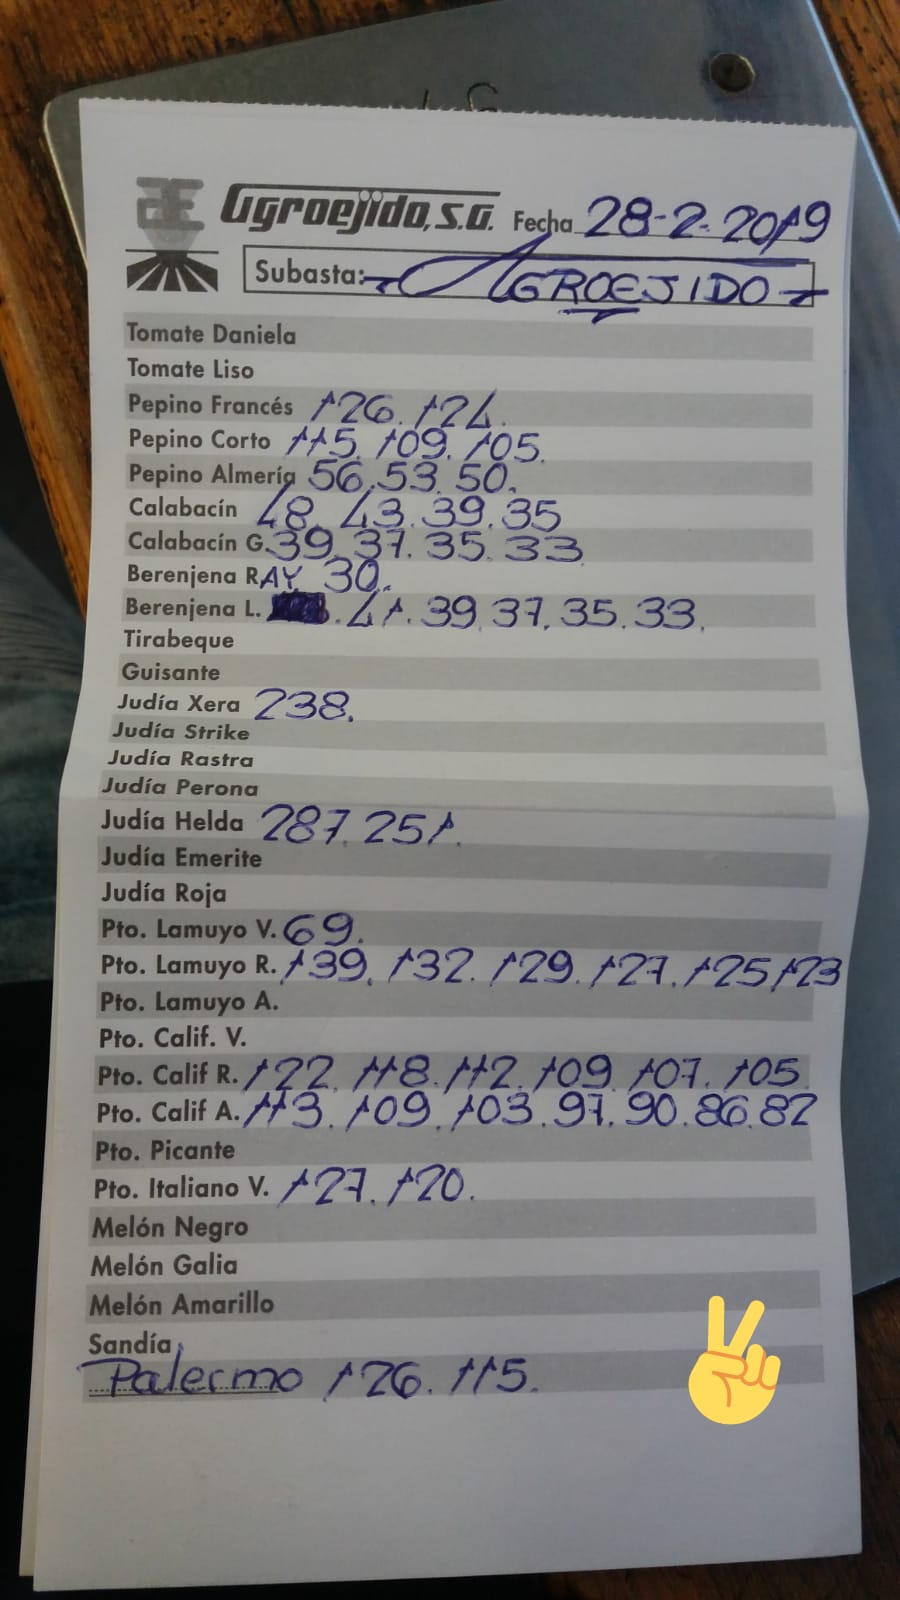 Agroejido, S.A. Fecha 28-2-2019
Subasta: AGROEJIDO
Tomate Daniela
Tomate Liso
Pepino Francés 126. 124.
Pepino Corto 115. 109. 105.
Pepino Almería 56. 53. 50.
Calabacín 48. 43. 39. 35
Calabacín G. 39. 37. 35. 33
Berenjena RAY 30.
Berenjena L. . 41. 39. 37. 35. 33.
Tirabeque
Guisante
Judía Xera 238.
Judía Strike
Judía Rastra
Judía Perona
Judía Helda 287. 251.
Judía Emerite
Judía Roja
Pto. Lamuyo V. 69.
Pto. Lamuyo R. 139. 132. 129. 127. 125 123
Pto. Lamuyo A.
Pto. Calif. V.
Pto. Calif R. 122. 118. 112. 109. 107. 105
Pto. Calif A. 113. 109. 103. 97. 90. 86. 82
Pto. Picante
Pto. Italiano V. 127. 120.
Melón Negro
Melón Galia
Melón Amarillo
Sandía
Palermo 126. 115.